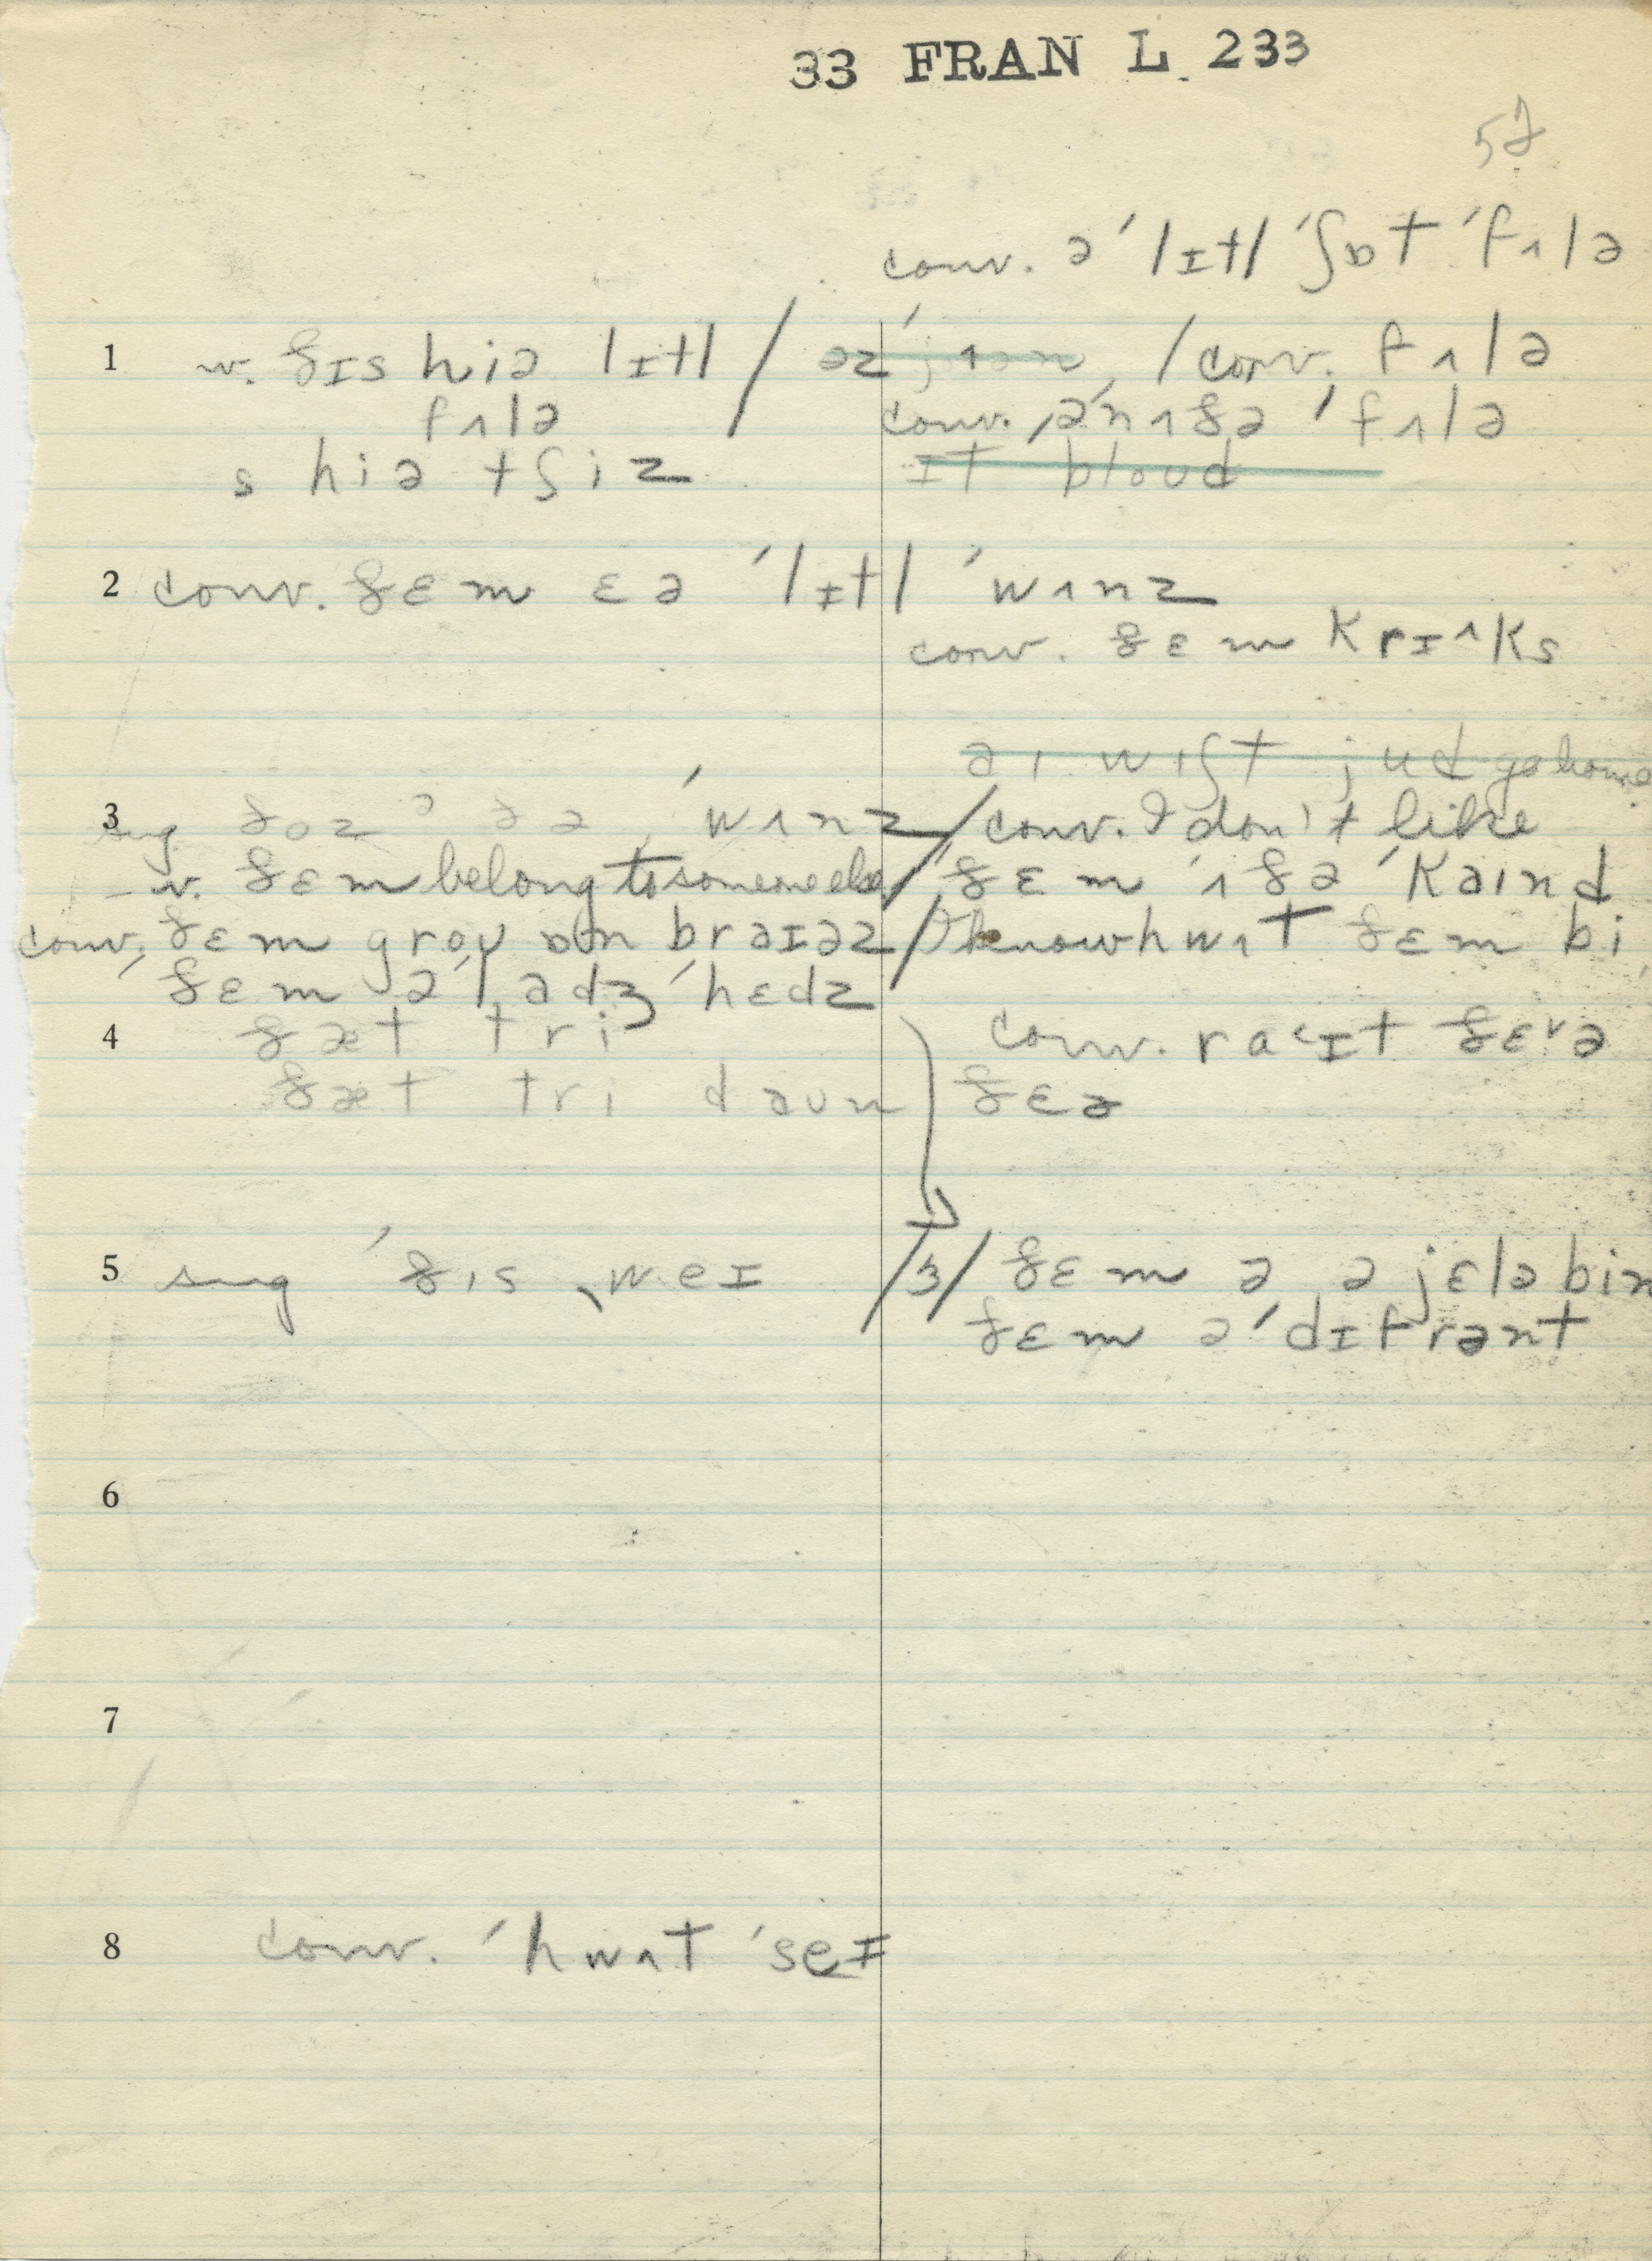 33 FRAN L. 233
52
conv. ə ˈlɪtl ˈʃɒt ˈfʌlə
1 w. ðɪs hiə lɪtl / əz / conv. fʌlə
fʌlə conv. əˈnʌðə ˈfʌlə
s hiə tʃiz ɪt bloud
2 conv. ðɛm ɛə ˈlɪtl ˈwʌnz
conv. ðɛm krɪʌks
aɪ wɪʃt jud go home
3 sug ðoz ə ðə ˈwʌnz / conv. I don't like
w. ðɛm belong to someone else / ðɛm ˈʌðə ˈkaɪnd
conv. ðɛm groʊ ɒn braɪəz / I know hwʌt ðɛm bi
ðɛm ə lɑdʒ ˈhɛdz
4 ðæt tri conv. raɪt ðɛə
ðæt tri daʊn ðɛə
5 sug ˈðɪs ˌweɪ /3/ ðɛm ə ə jɛlə bin
ðɛm ə ˈdɪfrənt
6
7
8 conv. ˈhwʌt ˈseɪ